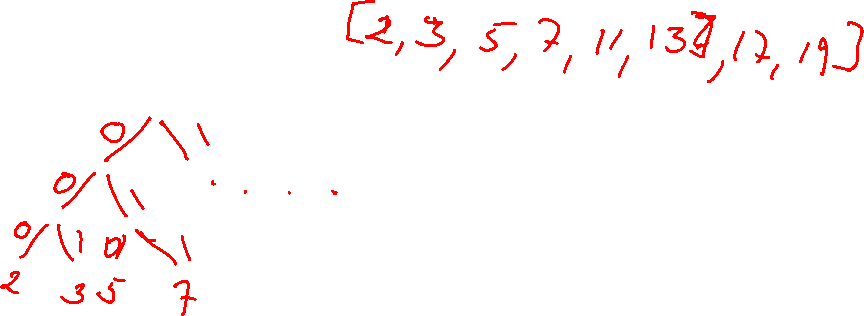 [2, 3, 5, 7, 11, 13, 17, 19]
0 1
0 1
0 1 0 1
2 3 5 7